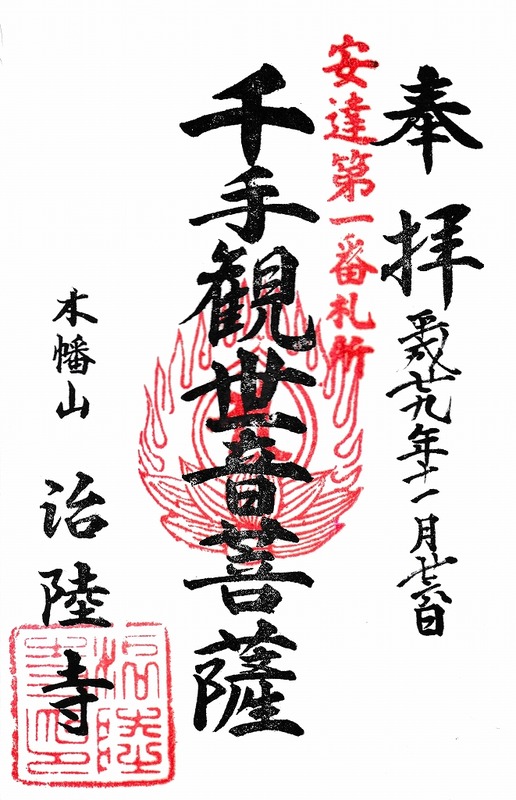 奉拝
平成廿九年十一月廿六日
安達第一番札所
千手観世音菩薩
木幡山
治陸寺